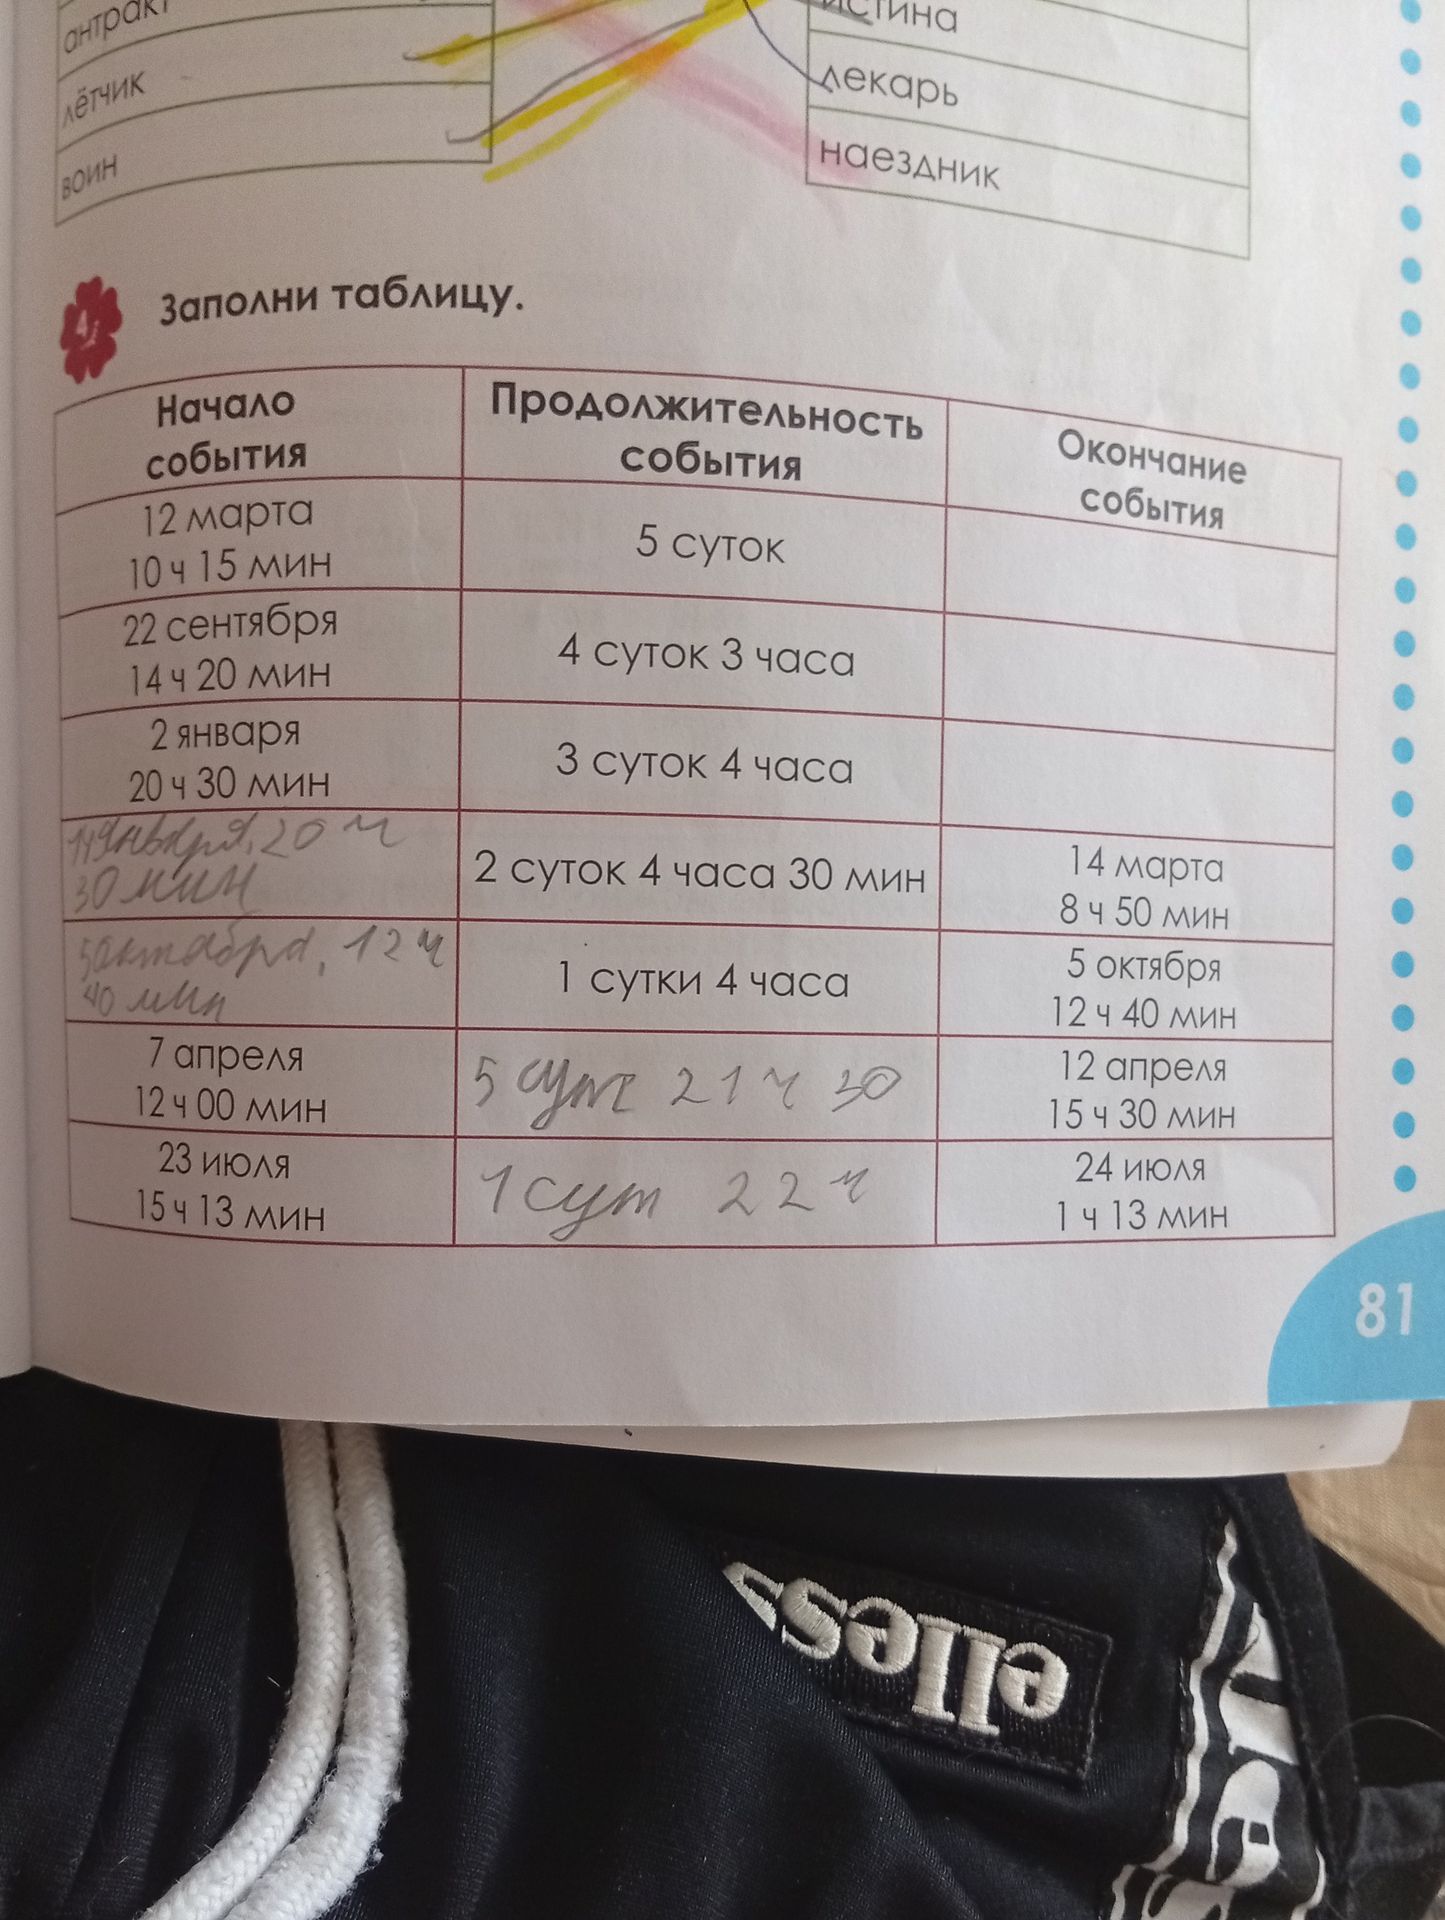 антракт
истина
лётчик
лекарь
воин
наездник
4
Заполни таблицу.
Начало
события
Продолжительность
события
Окончание
события
12 марта
10 ч 15 мин
5 суток
22 сентября
14 ч 20 мин
4 суток 3 часа
2 января
20 ч 30 мин
3 суток 4 часа
января, 20 ч
30 мин
2 суток 4 часа 30 мин
14 марта
8 ч 50 мин
5 октября, 12 ч
40 мин
1 сутки 4 часа
5 октября
12 ч 40 мин
7 апреля
12 ч 00 мин
5 сут 21 ч 30
12 апреля
15 ч 30 мин
23 июля
15 ч 13 мин
1 сут 22 ч
24 июля
1 ч 13 мин
81
elless